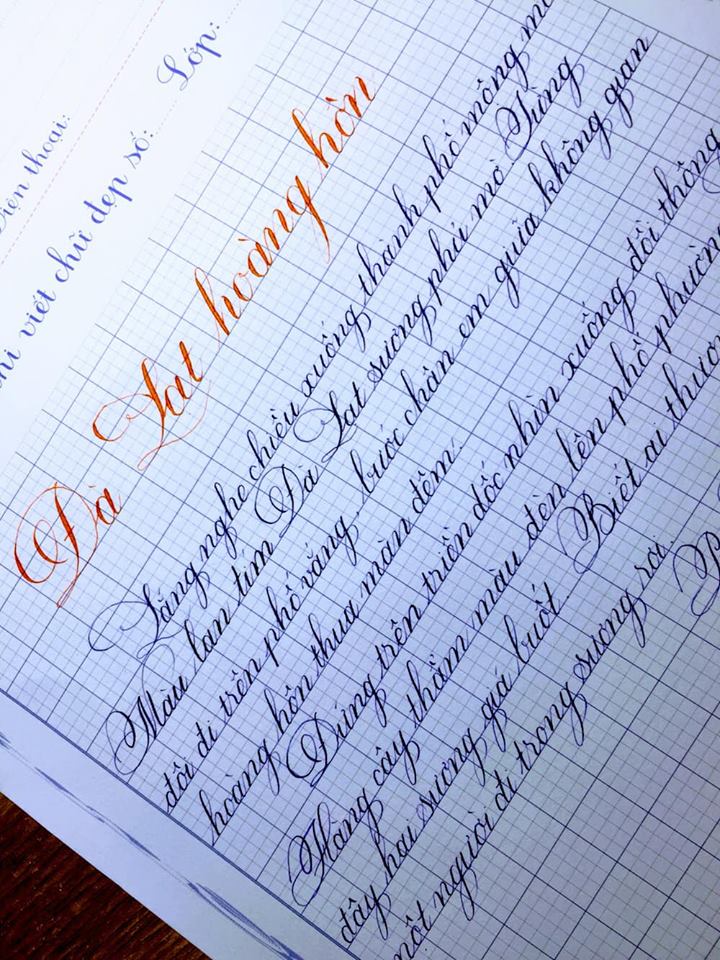 Điện thoại:
thi viết chữ đẹp số: Lớp:
Đà Lạt hoàng hôn
Lắng nghe chiều xuống thành phố mộng
Màu lan tím Đà Lạt sương phủ mờ Từng
đôi đi trên phố vắng, bước chân em giữa không gian
hoàng hôn thua màn đêm.
Đứng trên triền dốc nhìn xuống đồi thông
Hàng cây thẫm màu đèn lên phố phường
đây hơi sương giá buốt Biết ai
một người đi trong sương rơi